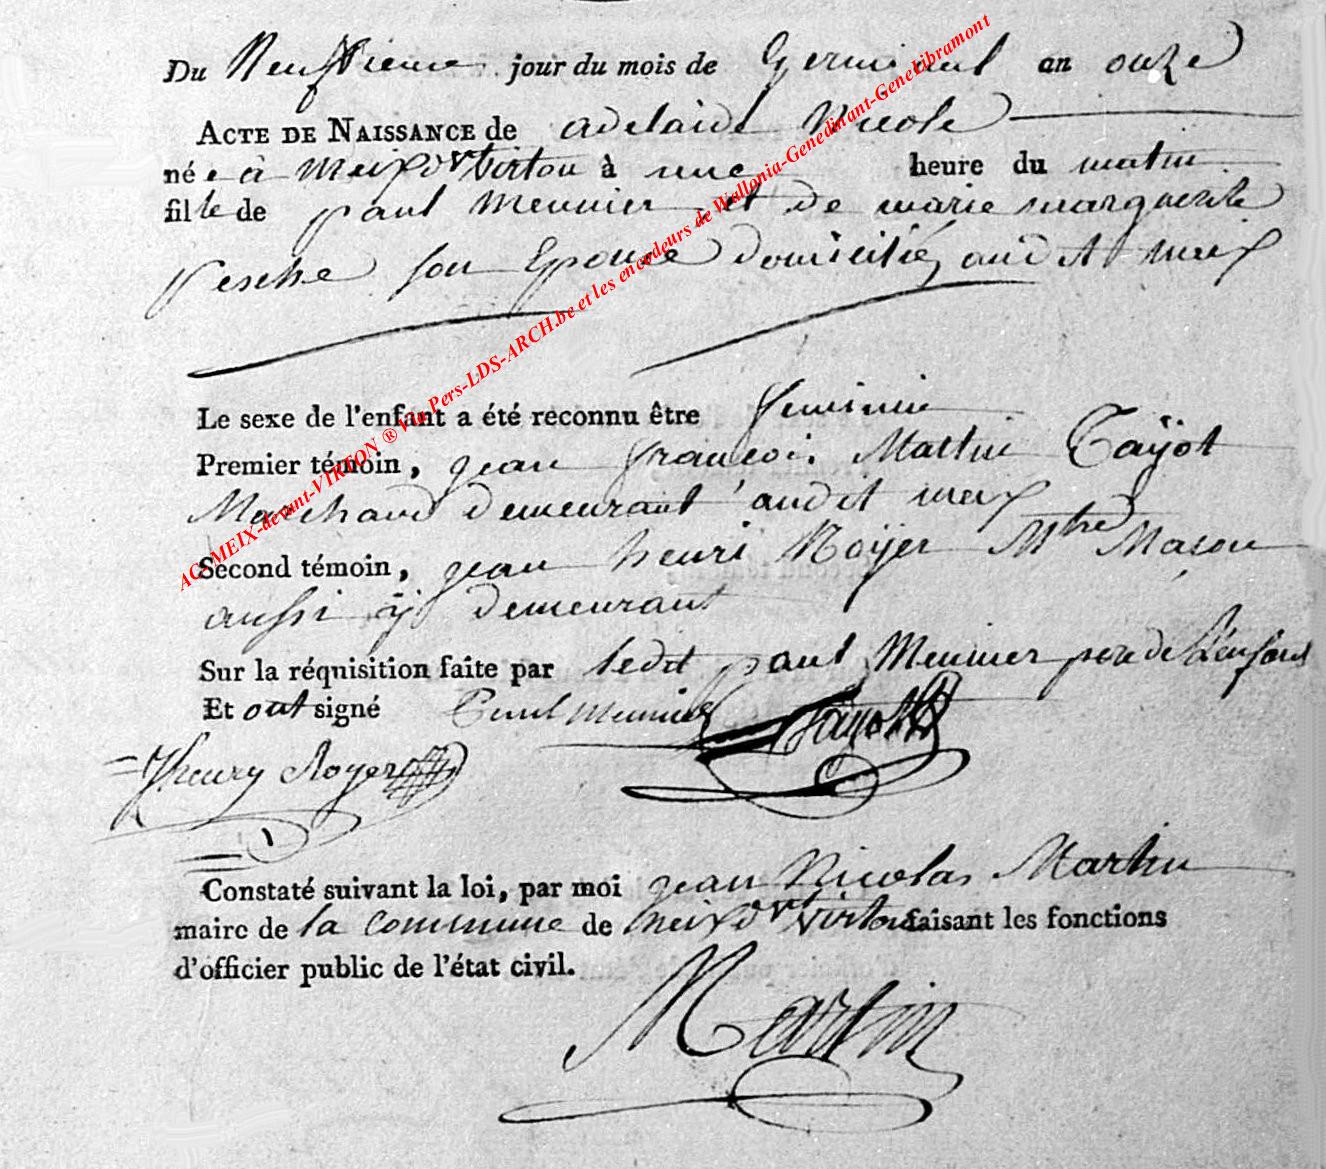 Du Neufvieme jour du mois de Germinal an onze
ACTE DE NAISSANCE de adelaide Nicole
né e à Meix dvt Virton à une heure du matin
fille de paul Meunier et de marie marguerite
pesche son Epouse domicilié audit meix
Le sexe de l'enfant a été reconnu être feminin
Premier témoin, jean françois Mathieu Tayot
Marchand demeurant audit meix
Second témoin, jean henri Royer Mtre Maçon
aussi ÿ demeurant
Sur la réquisition faite par ledit paul Meunier pere de L'enfant
Et ont signé Paul Meunier Tayot
Jhenry Royer
Constaté suivant la loi, par moi jean Nicolas Martin
maire de la commune de meix dvt Virton faisant les fonctions
d'officier public de l'état civil.
Martin
AC MEIX-devant-VIRTON ® Via Pers-LDS-ARCH.be et les encodeurs de Wallonia-Genedinant-GeneLibramont